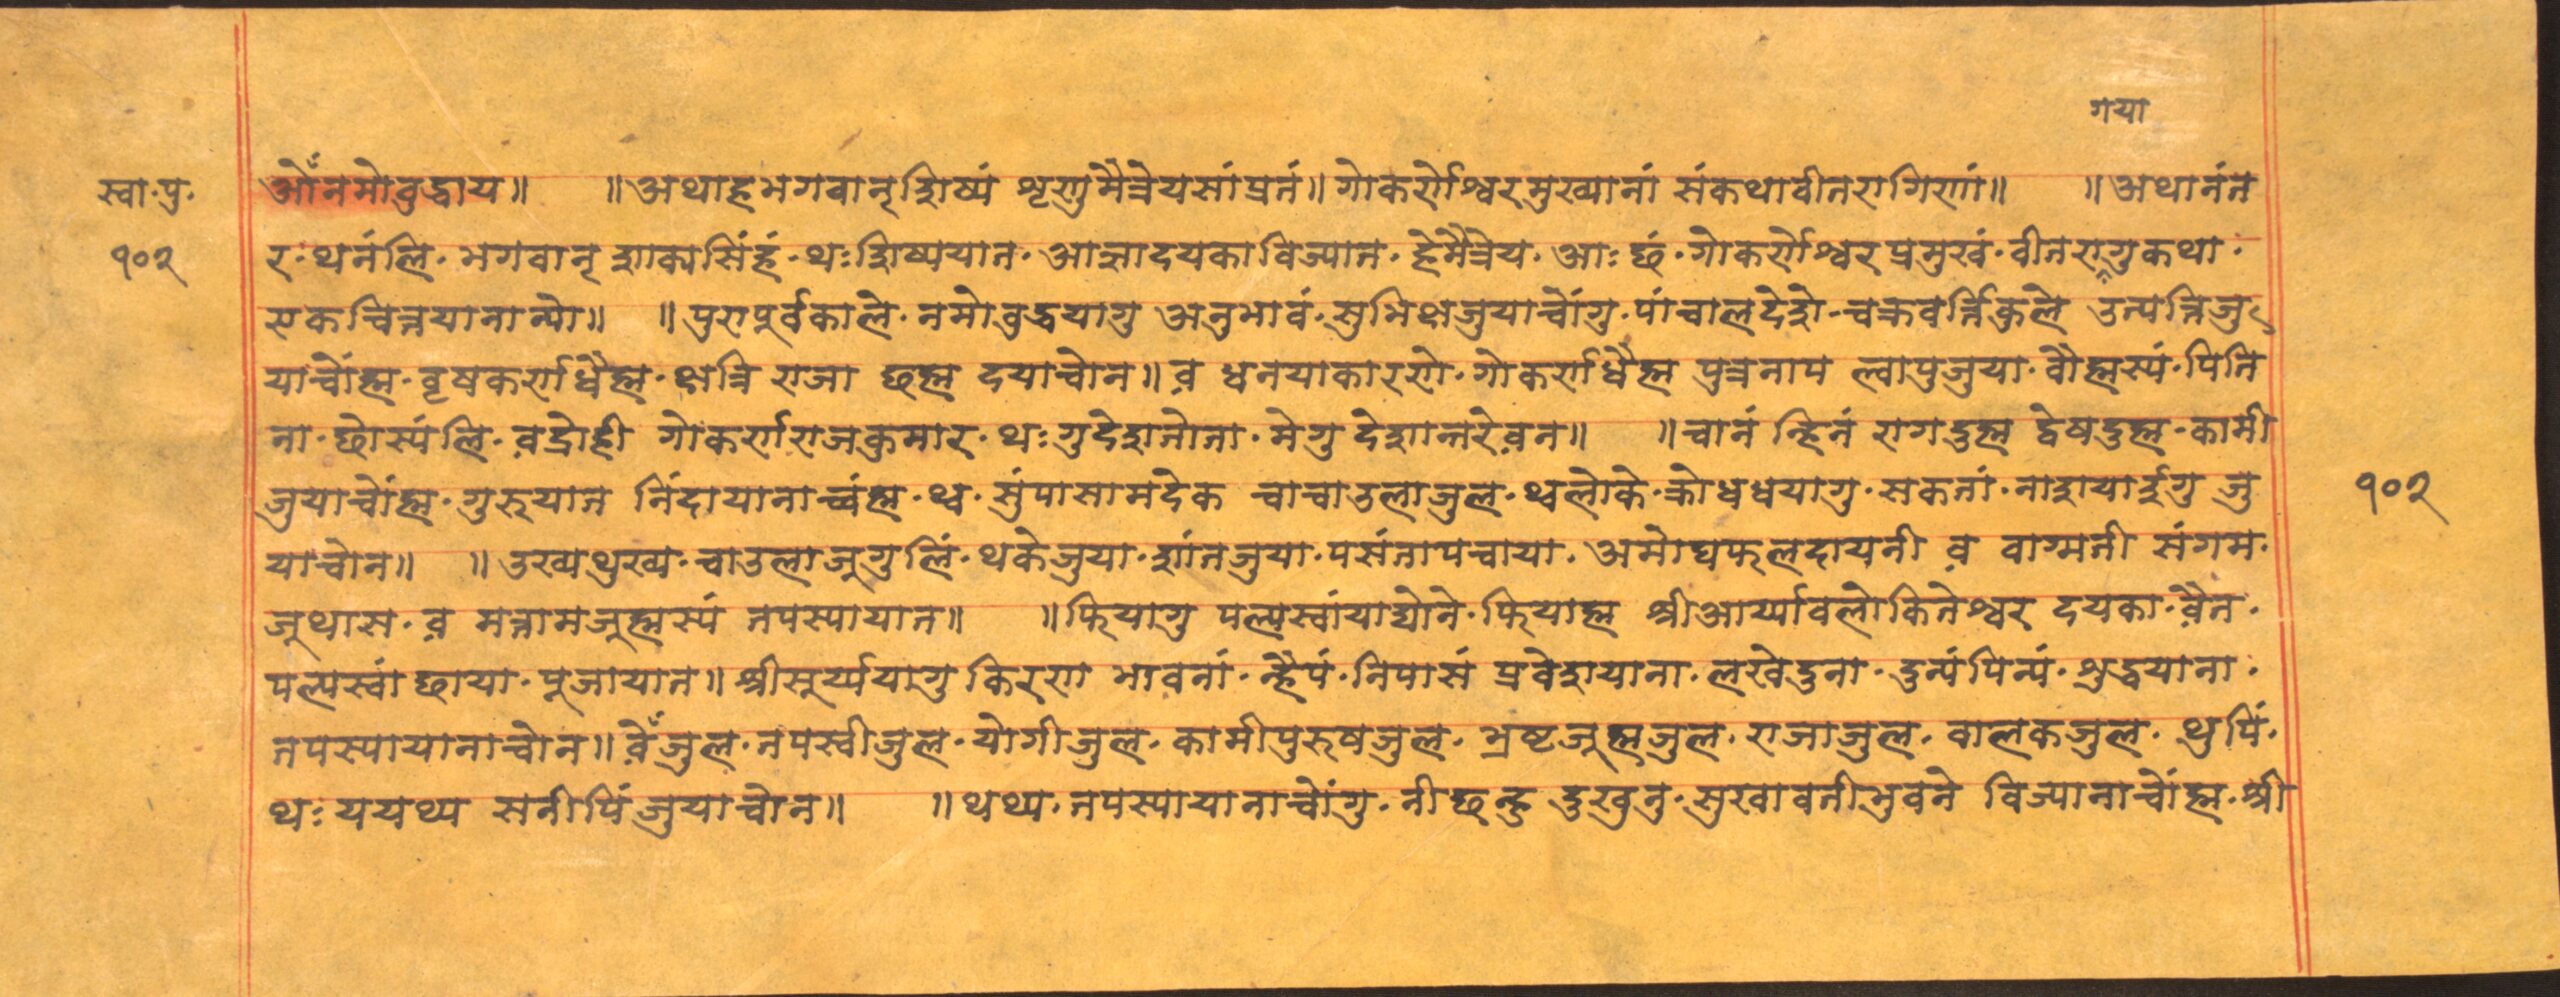 गया
स्वा॰पु॰
१०२
ओँ नमो वुद्धाय॥ ॥अथाह भगवान् शिष्यं शृणु मैत्रेय सांप्रतं॥ गोकर्णेश्वरमुख्यानां संकथा वीतरागिणां॥ ॥अथानंत
र॰थनंलि॰भगवान् शाक्यसिंहं॰थःशिष्ययात॰आज्ञादयका विज्यात॰हेमैत्रेय॰आः छं॰गोकर्णेश्वर प्रमुखं॰वीतरागु कथा॰
सकचिन्नयानान्यो॥ ॥पुरापूर्वकाले॰नमोवुद्धयागु अनुभावं॰सुभिक्षजुयाचोंगु॰पांचालदेशे॰चक्रवर्त्तिकुले उत्पन्निजु
याचोंह्म॰वृषकर्णाधैह्म॰क्षत्रि राजा छह्म दयाचोन॥ व़ धनयाकारणे॰गोकर्णाधैह्म पुत्रनाप ल्वापुजुया॰वौह्मस्यं॰पिति
ना॰छोस्यंलि॰व़द्रोही गोकर्णराजकुमार॰थःगुदेशतोता॰मेगु देशान्तरे व़न॥ ॥चानं न्हिनं रागदुह्म द्वेषदुह्म॰कामी
जुयाचोंह्म॰गुरुयात निंदायानाच्वंह्म॰थ्व॰सुंपासामदेक चाचाउलाजुल॰थ्वलोके॰क्रोधधयागु॰सकतां॰नाशयार्इगु जु
याचोन॥ ॥उख्यथुख्य॰चाउलाजूगुलिं॰थकेजुया॰शांतजुया॰पसंतापचाया॰अमोघफलदायनी व़ वाग्मती संगम॰
जूथास॰व़ मत्नामजूह्मस्यं तपस्यायात॥ ॥फियागु पल्यस्वांयाद्योने॰फियाह्म श्रीआर्य्यावलोकितेश्वर दयका॰व़ैत॰
पल्यस्वां छाया॰पूजायात॥ श्रीसूर्य्ययागु किरण भावनां॰न्हैपं॰निपासं प्रवेशयाना॰लखेदुना॰दुत्यंपित्यं॰शुद्धयाना॰
तपस्यायानाचोन॥ व़ेँजुल॰तपस्वीजुल॰योगीजुल॰कामीपुरुषजुल॰भ्रष्टजूह्मजुल॰राजाजुल॰वालकजुल॰थुपिं॰
थःययथ्य सतीपिंजुयाचोन॥ ॥थथ्य॰तपस्यायानाचोंगु॰नीछन्हु दुखुनु॰सुखावतीभुवने विज्यानाचोंह्म॰श्री
१०२